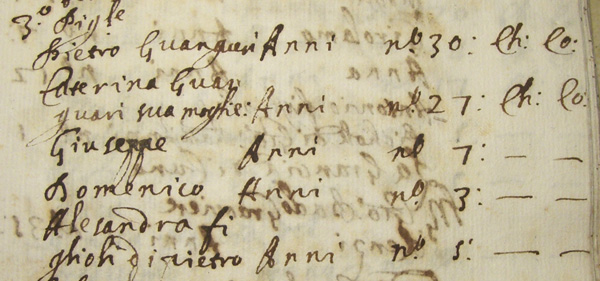 3.º
Pietro Guanguari Anni nº 30: Ch: Co:
Caterina Guan
guari sua moglie: Anni nº 27: Ch: Co:
Giuseppe Anni nº 7: — —
Domenico Anni nº 3: — —
Alesandra fi
glioli di Pietro Anni nº 5: — —